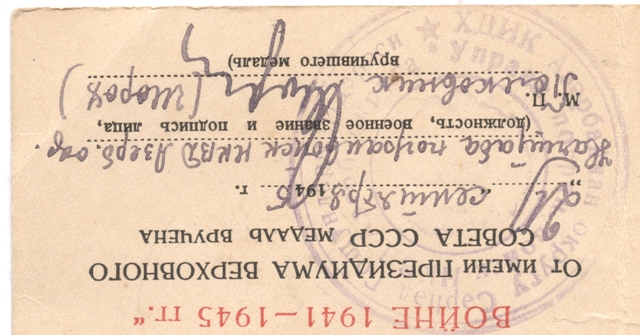 ВОЙНЕ 1941—1945 гг."
ОТ ИМЕНИ ПРЕЗИДИУМА ВЕРХОВНОГО
СОВЕТА СССР МЕДАЛЬ ВРУЧЕНА
сентября 1945 г.
Начштаба погранвойск НКВД Азерб. окр.
(должность, военное звание и подпись лица,
М. П. Полковник
вручившего медаль)
округа